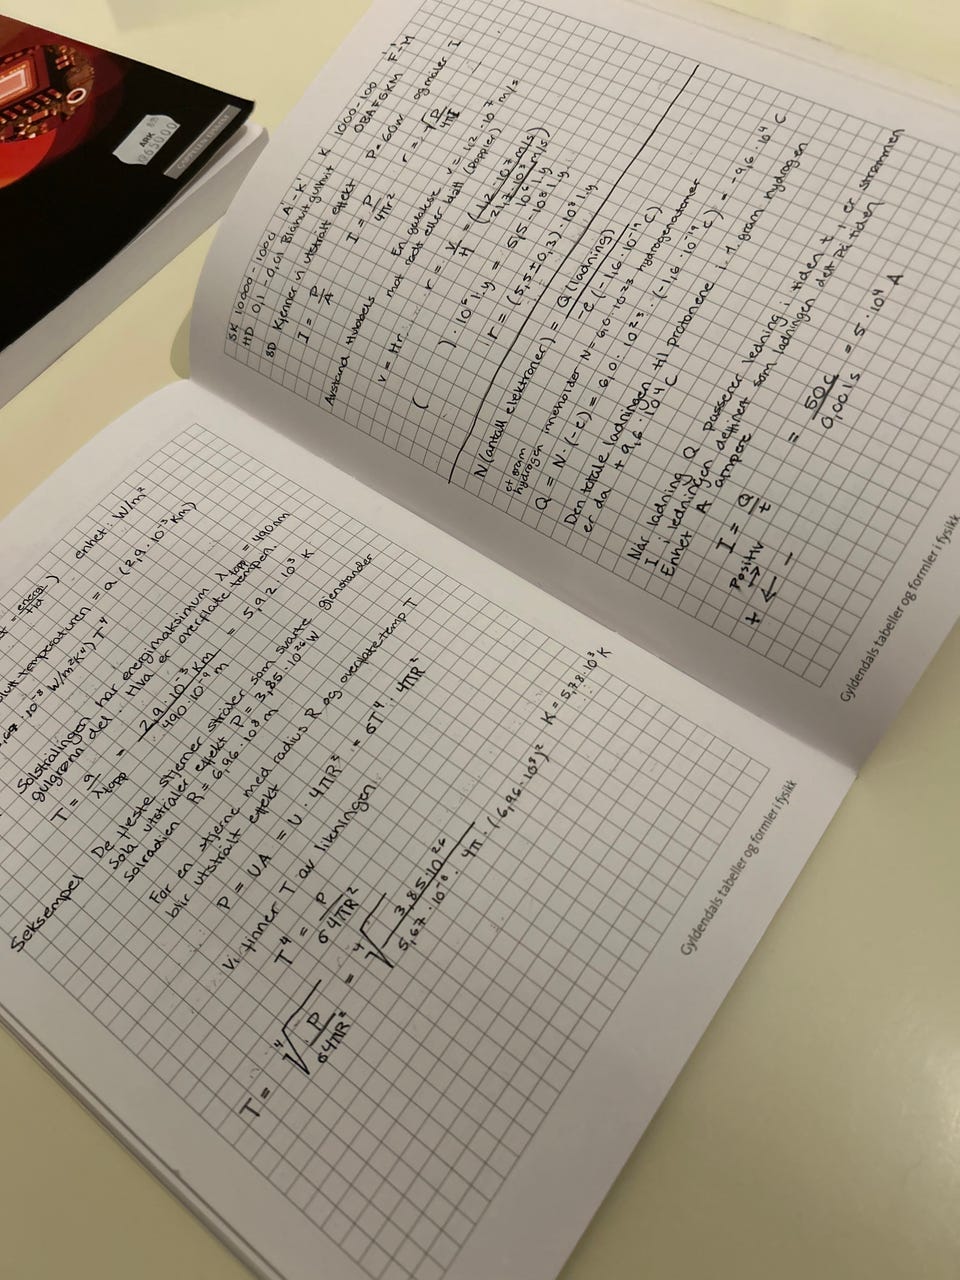 energi
tid
enhet: W/m²
absolutt temperaturen = a (2,9 · 10⁻³ Km)
5,67 · 10⁻⁸ W/m²K⁴) T⁴
Solstrålingen har energimaksimum λtopp = 490nm
gulgrønn del. Hva er overflate tempen.
T = a/λtopp = 2,9 · 10⁻³ Km / 490 · 10⁻⁹ m = 5,92 · 10³ K
5eksempel
De fleste stjerner stråler som svarte gjenstander
Sola utstråler effekt P = 3,85 · 10²⁶ W
Solradien R = 6,96 · 10⁸ m
For en stjerne med radius R og overflatetemp T
blir utstrålt effekt
P = UA = U · 4πR² = σT⁴ · 4πR²
Vi finner T av likningen
T⁴ = P/σ4πR²
T = ⁴√P/σ4πR² = ⁴√3,85·10²⁶ / 5,67·10⁻⁸ · 4π · (6,96·10⁸)² K = 5,78·10³ K
Gyldendals tabeller og formler i fysikk
SK 10000-1000 Ai-Ki
HD 0,1 - 0,01 Blåhvit gulhvit K 1000-100
OBAFGKM F-M
SD Kjenner vi utstrålt effekt P = 60W og måler I
I = P/A I = P/4πr² r = √P/4πI
Avstand Hubbles
En galakse v = 1,2 · 10⁷ m/s
mot rødt eller blått (Doppler)
v = Hr r = v/H = (1,2 · 10⁷ m/s)
r = (5,5 ± 0,3) · 10⁸ l.y.
N (antall elektroner) = Q (ladning) / -e (-1,6 · 10⁻¹⁹ C)
et gram
hydrogen inneholder N = 6,0 · 10²³ hydrogenatomer
Q = N · (-e) = 6,0 · 10²³ · (-1,6 · 10⁻¹⁹ C) = -9,6 · 10⁴ C
Den totale ladningen til protonene i 1 gram hydrogen
er da + 9,6 · 10⁴ C
Når ladning Q passerer ledning i tiden t er strømmen
I i ledningen definert som ladningen delt på tiden
Enhet A ampere
I = Q/t = 50C/0,001s = 5 · 10⁴ A
Positiv
+ -
Gyldendals tabeller og formler i fysikk
ARK